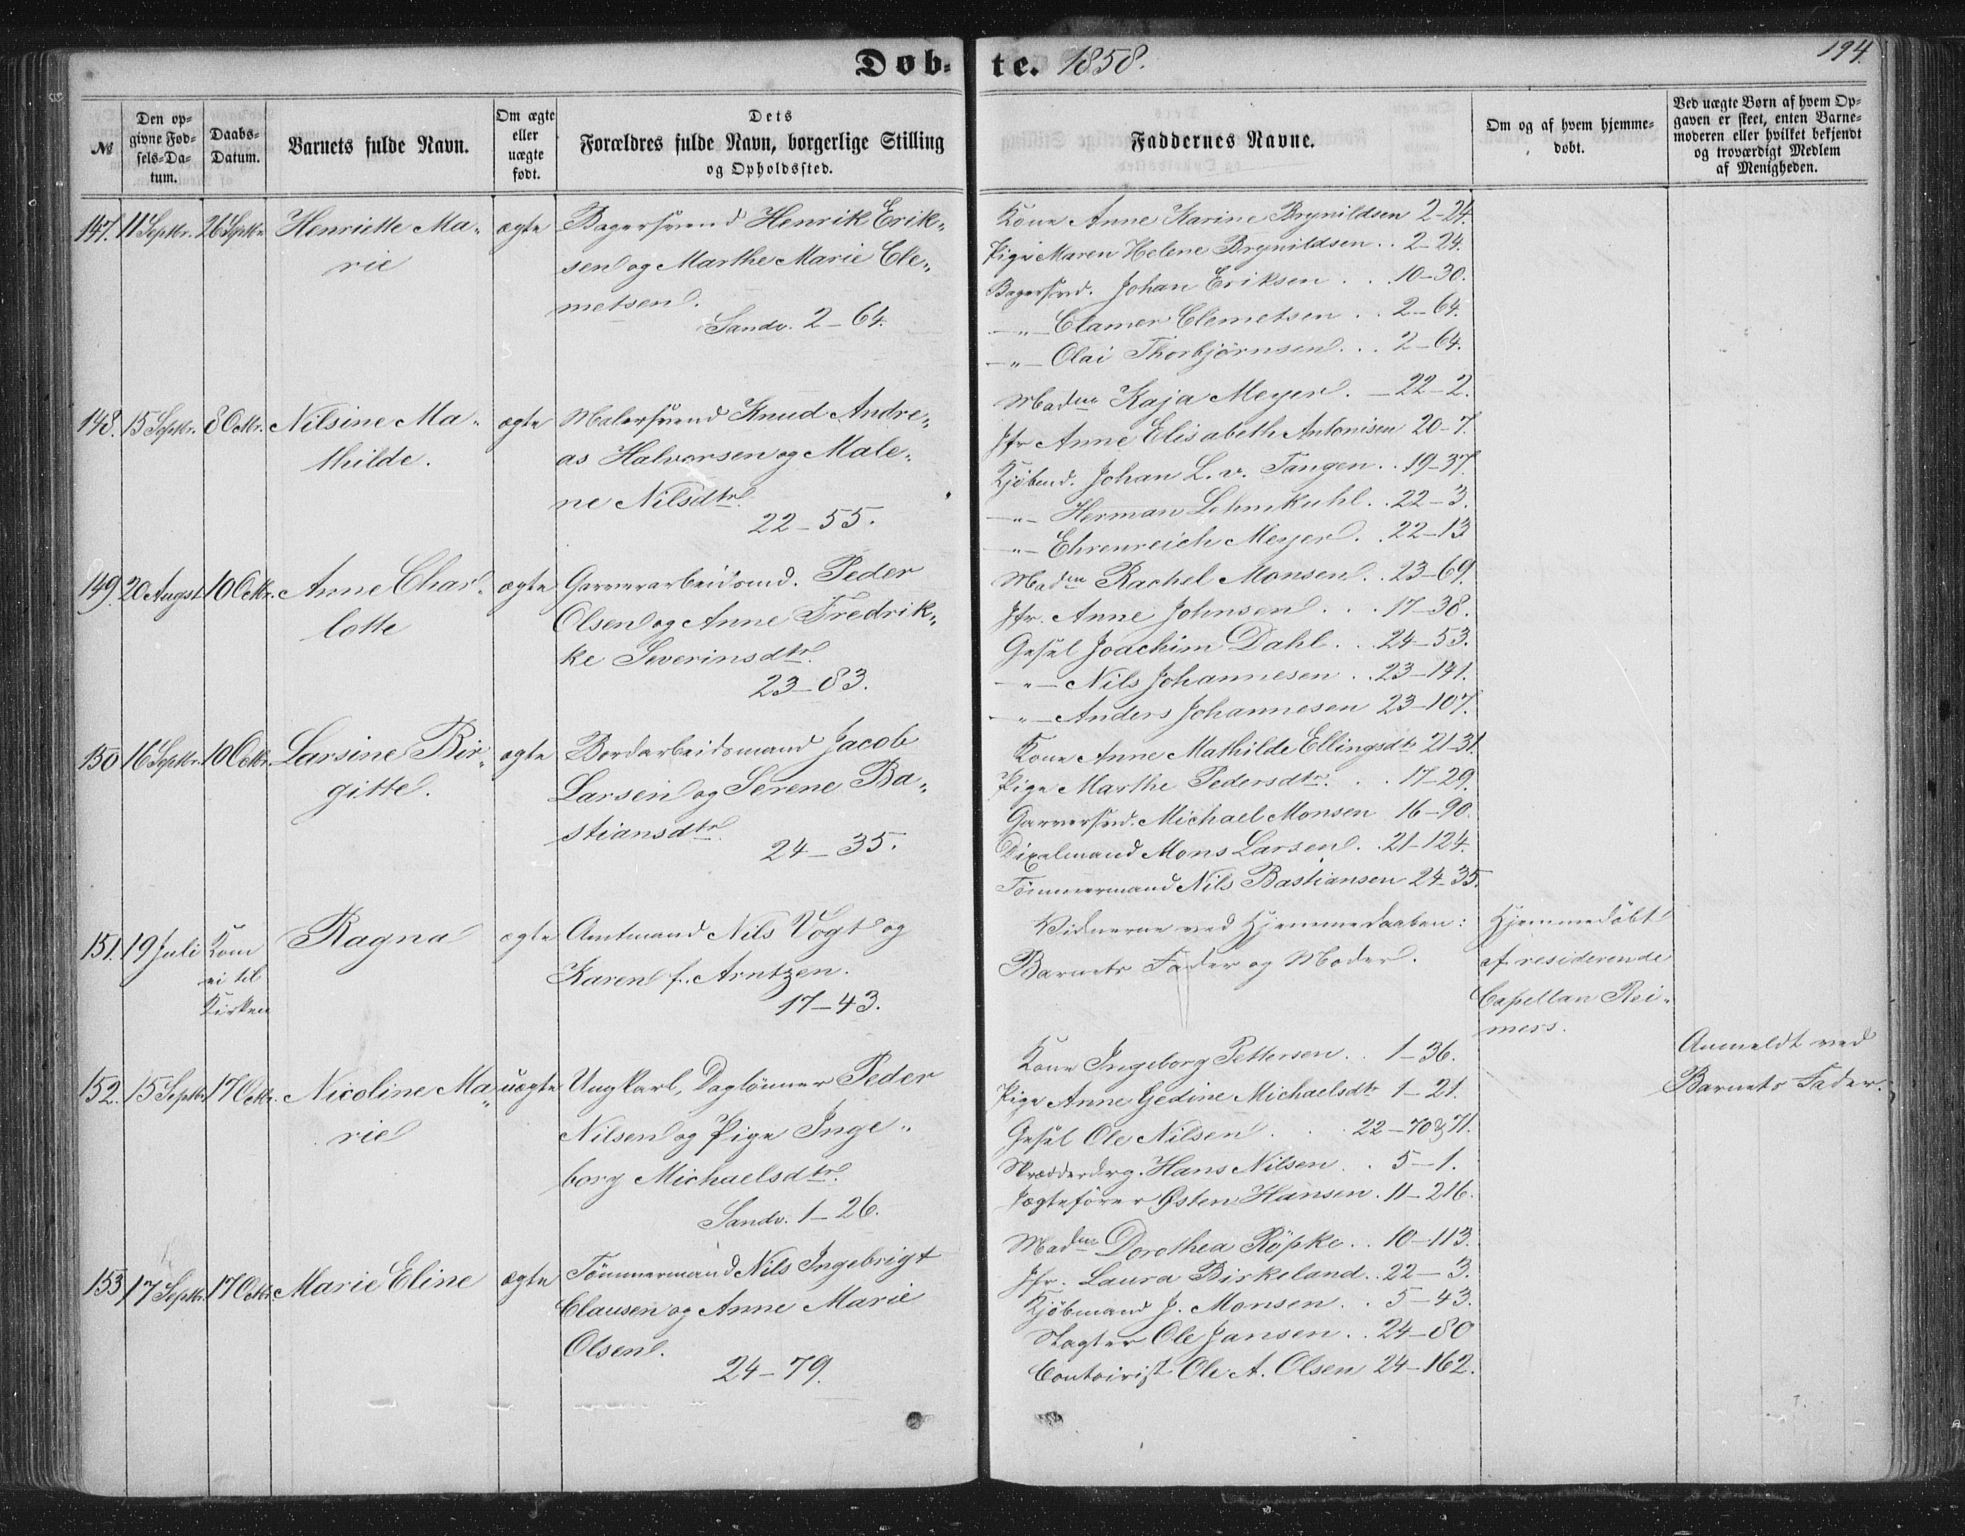 Døb-te. 1858.
194.
№
Den op-
givne Fød-
sels-Da-
tum.
Daabs-
Datum.
Barnets fulde Navn.
Om ægte
eller
uægte
født.
Dets
Forældres fulde Navn, borgerlige Stilling
og Opholdssted.
Faddernes Navne.
Om og af hvem hjemme-
døbt.
Ved uægte Børn af hvem Op-
gaven er skeet, enten Barne-
moderen eller hvilket bekjendt
og troværdigt Medlem
af Menigheden.
147. 11 Septbr. 26 Septbr. Henriette Ma-
rie
ægte
Bagersvend Henrik Erik-
sen og Marthe Marie Cle-
metsen.
Sandv. 2-64.
Kone Anne Karine Brynildsen 2-24.
Pige Maren Helene Brynildsen .. 2-24.
Bagersvd. Johan Eriksen .. 10-30.
-"- Clamer Clemetsen .. 2-64.
-"- Olai Thorbjørnsen ... 2-64.
148. 15 Septbr. 8 Octbr. Nilsine Ma-
thilde.
ægte
Malersvend Knud Andre-
as Halvorsen og Male-
ne Nilsdtr.
22-55.
Madme Kaja Meyer. - 22-2.
Jfr Anne Elisabeth Antonisen 20-7.
Kjøbmd. Johan L. v. Tangen .. 19-37.
-"- Herman Lehmkuhl .. 22-3.
-"- Ehrenreich Meyer .. 22-13
149. 20 Augst 10 Octbr. Anne Char-
lotte
ægte
Garverarbeidsmd. Peder
Olsen og Anne Fredrik-
ke Severinsdtr.
23-83.
Madme Rachel Monsen .. 23-69.
Jfr. Anne Johnsen ... 17-38.
Gesel Joachim Dahl ... 24-53.
-"- Nils Johannesen .. 23-141.
-"- Anders Johannesen 23-107.
150 16 Septbr. 10 Octbr. Larsine Bir-
gitte.
ægte
Bordarbeidsmand Jacob
Larsen og Serene Ba-
stiansdtr.
24-35.
Kone Anne Mathilde Ellingsdtr 21-31.
Pige Marthe Pedersdtr. .. 17-29.
Garversvd. Michael Monsen 16-90.
Dixelmand Mons Larsen .. 21-124.
Tømmermand Nils Bastiansen 24-35.
151. 19 Juli Kom
ei til
Kirken
Ragna
ægte
Amtmand Nils Vogt og
Karen f. Arntzen.
17-43.
Vidnerne ved Hjemmedaaben:
Barnets Fader og Moder.
Hjemmedøbt
af residerende
Capellan Rei-
mers.
152. 15 Septbr. 17 Octbr. Nicoline Ma-
rie
uægte
Ungkarl, Daglønner Peder
Nilsen og Pige Inge-
borg Michaelsdtr.
Sandv. 1-26.
Kone Ingeborg Pettersen .. 1-36.
Pige Anne Gedine Michaelsdtr 1-21.
Gesel Ole Nilsen .. 22-70&71.
Skrædderdrg. Hans Nilsen .. 5-1.
Jægtefører Østen Hansen . 11-216.
Anmeldt ved
Barnets Fader.
153 17 Septbr. 17 Octbr. Marie Eline
ægte
Tømmermand Nils Ingebrigt
Clausen og Anne Marie
Olsen.
24-79.
Madme Dorothea Röpke .. 10-113.
Jfr. Laura Birkeland .. 22-3.
Kjøbmand J. Monsen .. 5-43.
Slagter Ole Jansen .. 24-80
Contoirist Ole A. Olsen 24-162.